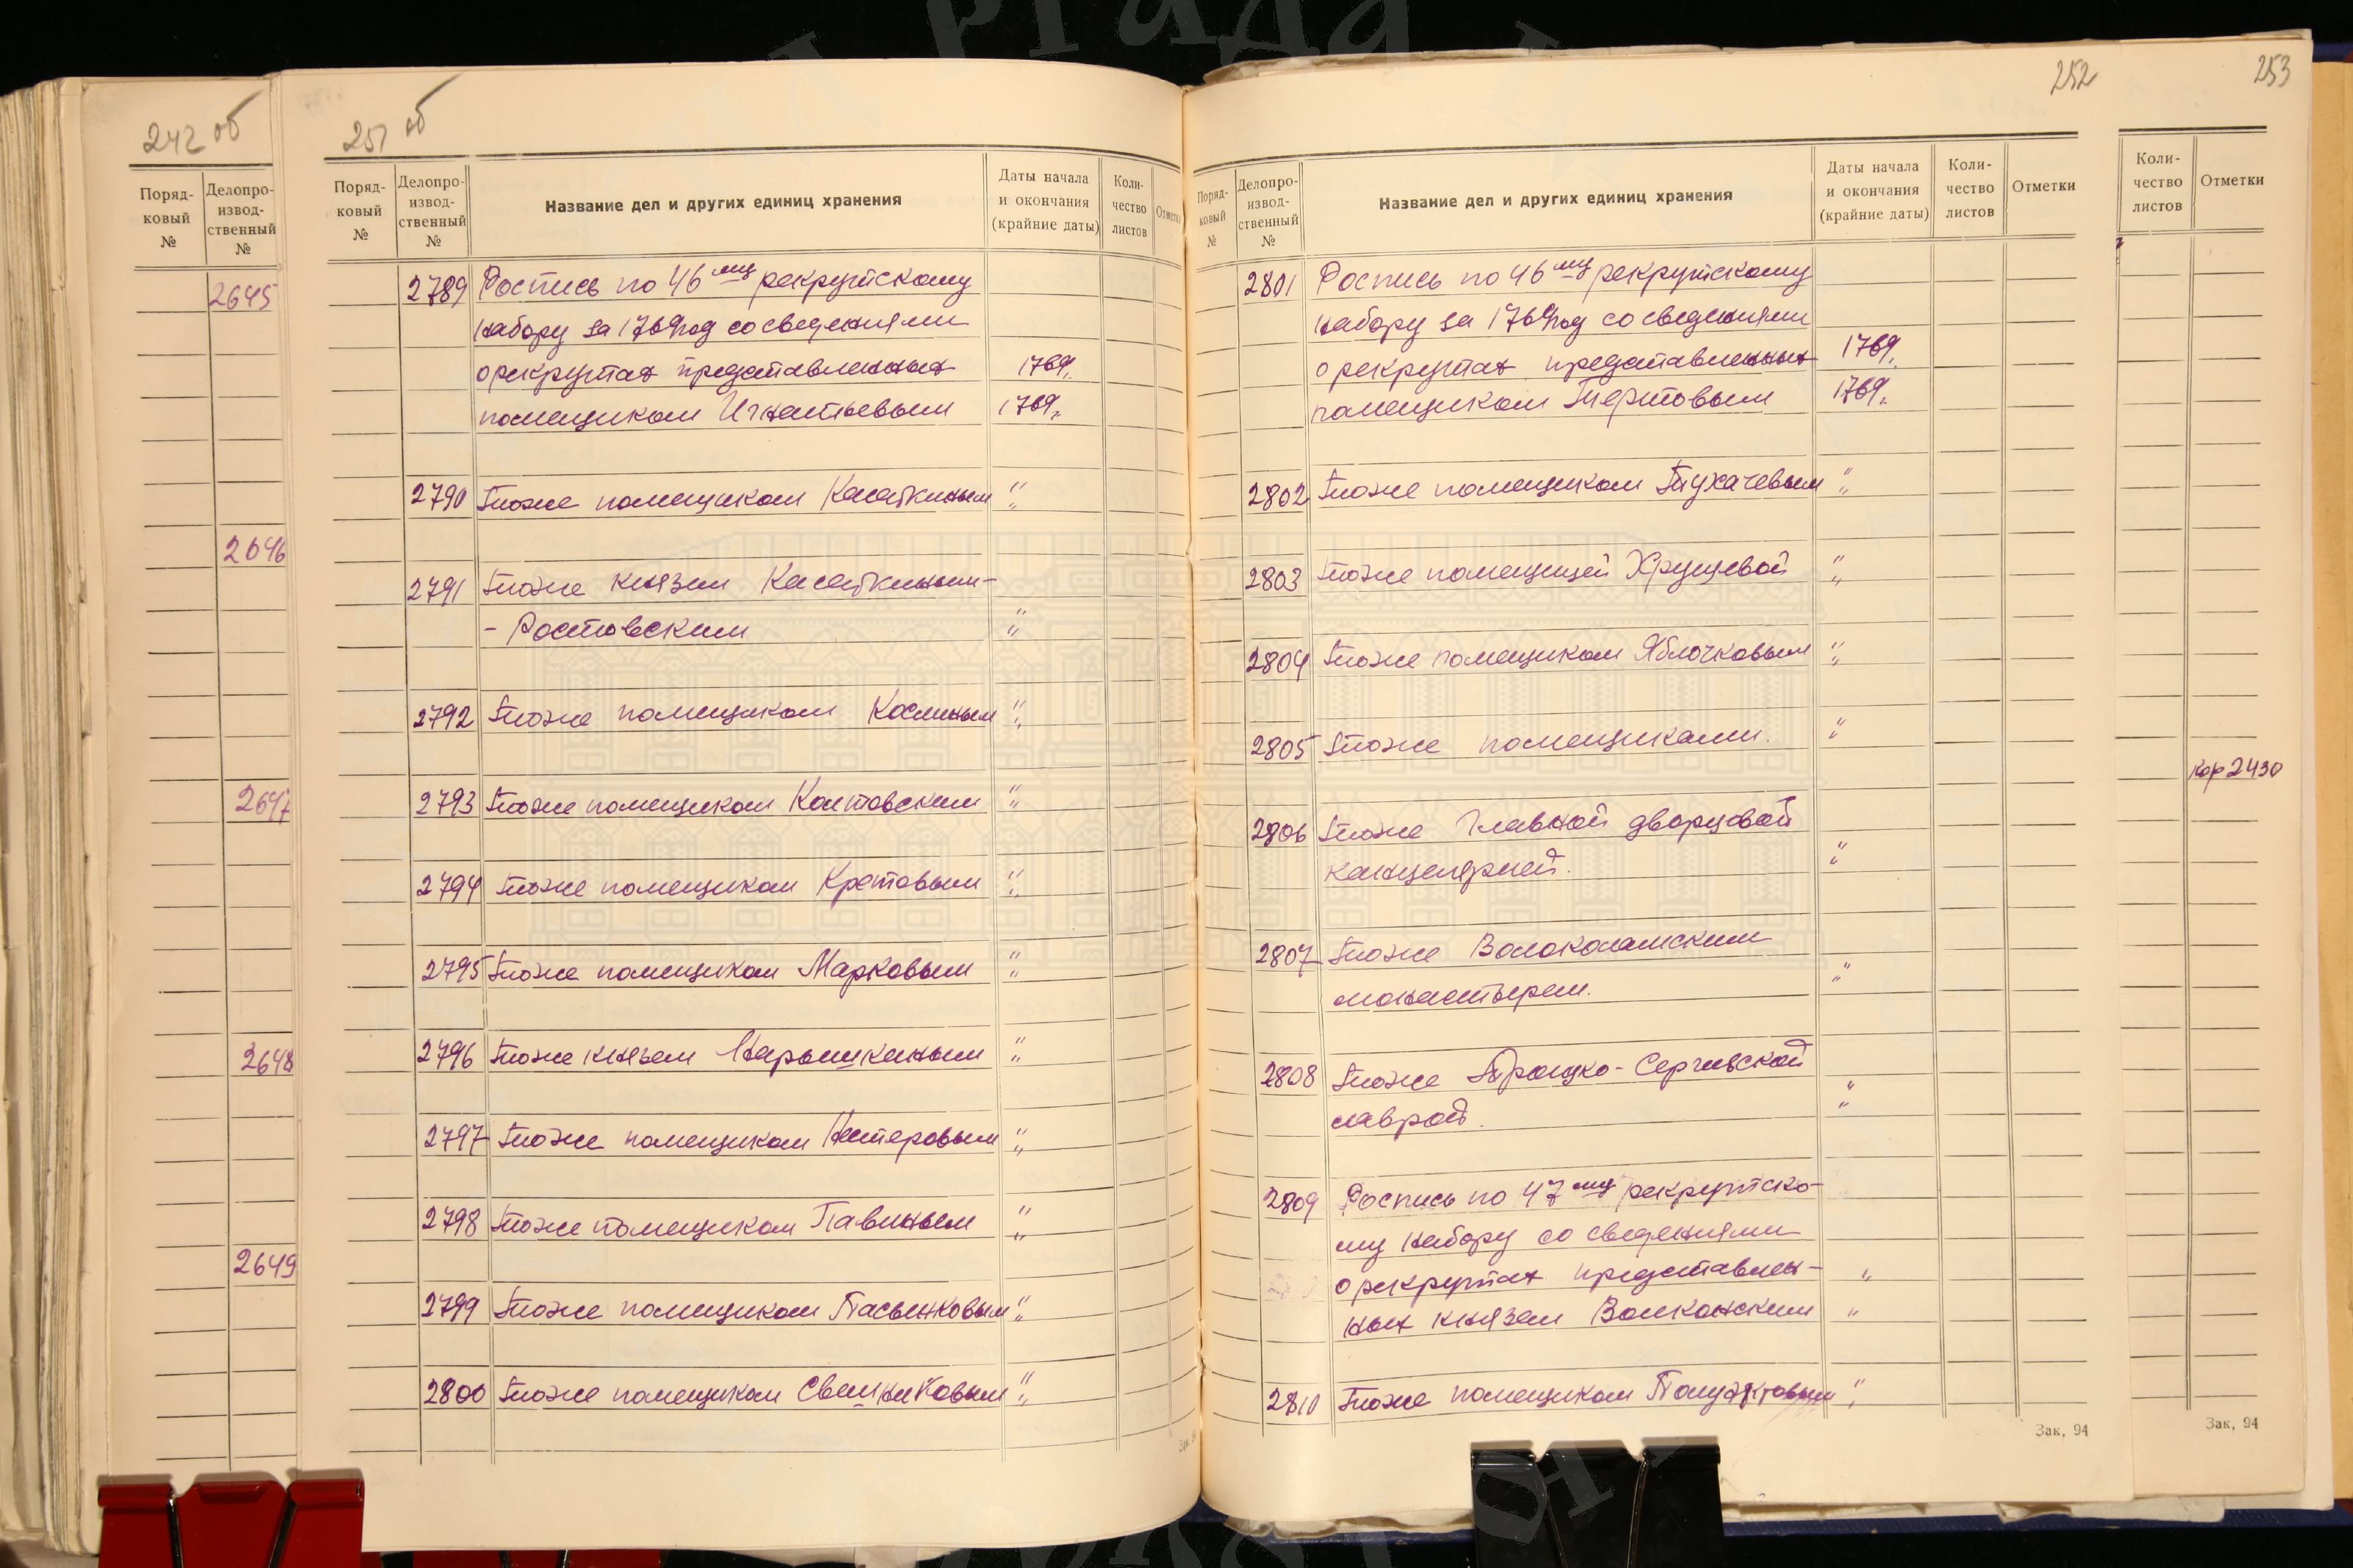 242 об
Поряд-
ковый
№
Делопро-
извод-
ственный
№
2645
2646
2647
2648
2649
251 об
Поряд-
ковый
№
Делопро-
извод-
ственный
№
Название дел и других единиц хранения
Даты начала
и окончания
(крайние даты)
Коли-
чество
листов
2789 Роспись по 46 му рекрутскому
набору за 1769 год со сведениями
о рекрутах представленных 1769.
помещиком Игнатьевым 1769.
2790 Тоже помещиком Касаткиным "
2791 Тоже князем Касаткиным-
- Ростовским "
2792 Тоже помещиком Косминым "
2793 Тоже помещиком Колтовским "
2794 Тоже помещиком Кретовым "
2795 Тоже помещиком Марковым "
2796 Тоже князем Нарышкиным "
2797 Тоже помещиком Нестеровым "
2798 Тоже помещиком Павиным "
2799 Тоже помещиком Пасынковым "
2800 Тоже помещиком Свешниковым "
252
Поряд-
ковый
№
Делопро-
извод-
ственный
№
Название дел и других единиц хранения
Даты начала
и окончания
(крайние даты)
Коли-
чество
листов
Отметки
2801 Роспись по 46 му рекрутскому
набору за 1769 год со сведениями
о рекрутах представленных 1769.
помещиком Тертовым 1769.
2802 Тоже помещиком Тухачевым "
2803 Тоже помещицей Хрущевой "
2804 Тоже помещиком Яблочковым "
2805 Тоже помещиками. "
2806 Тоже Главной дворцовой
канцелярией. "
2807 Тоже Волоколамским
монастырем. "
2808 Тоже Троицко-Сергиевской "
лаврой. "
2809 Роспись по 47 му рекрутско-
му набору со сведениями
о рекрутах представлен- "
ных князем Волконским "
2810 Тоже помещиком "
Зак. 94
253
Коли-
чество
листов
Отметки
кор 2430
Зак. 94